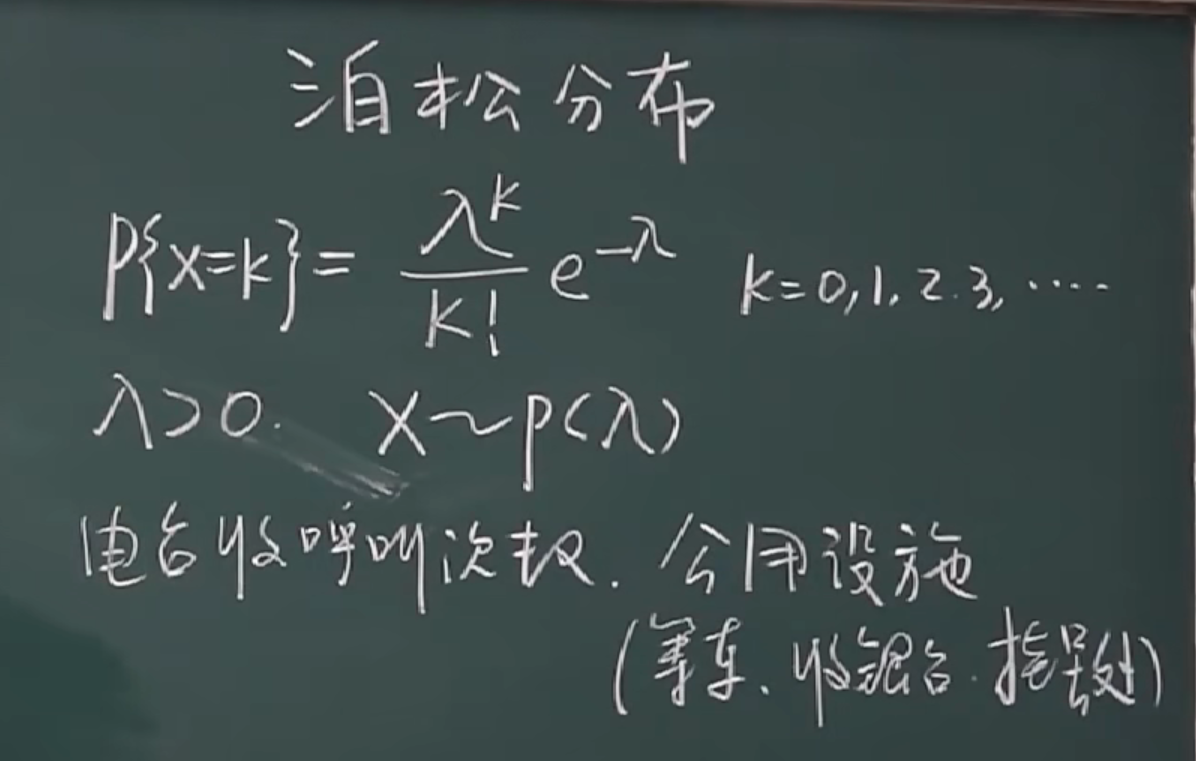 泊松分布
P{X=k} = λ^k/k! e^{-λ} k=0,1,2.3,····
λ>0. X~P(λ)
电台收呼叫次数. 公用设施
(等车、收银台. 挂号处)